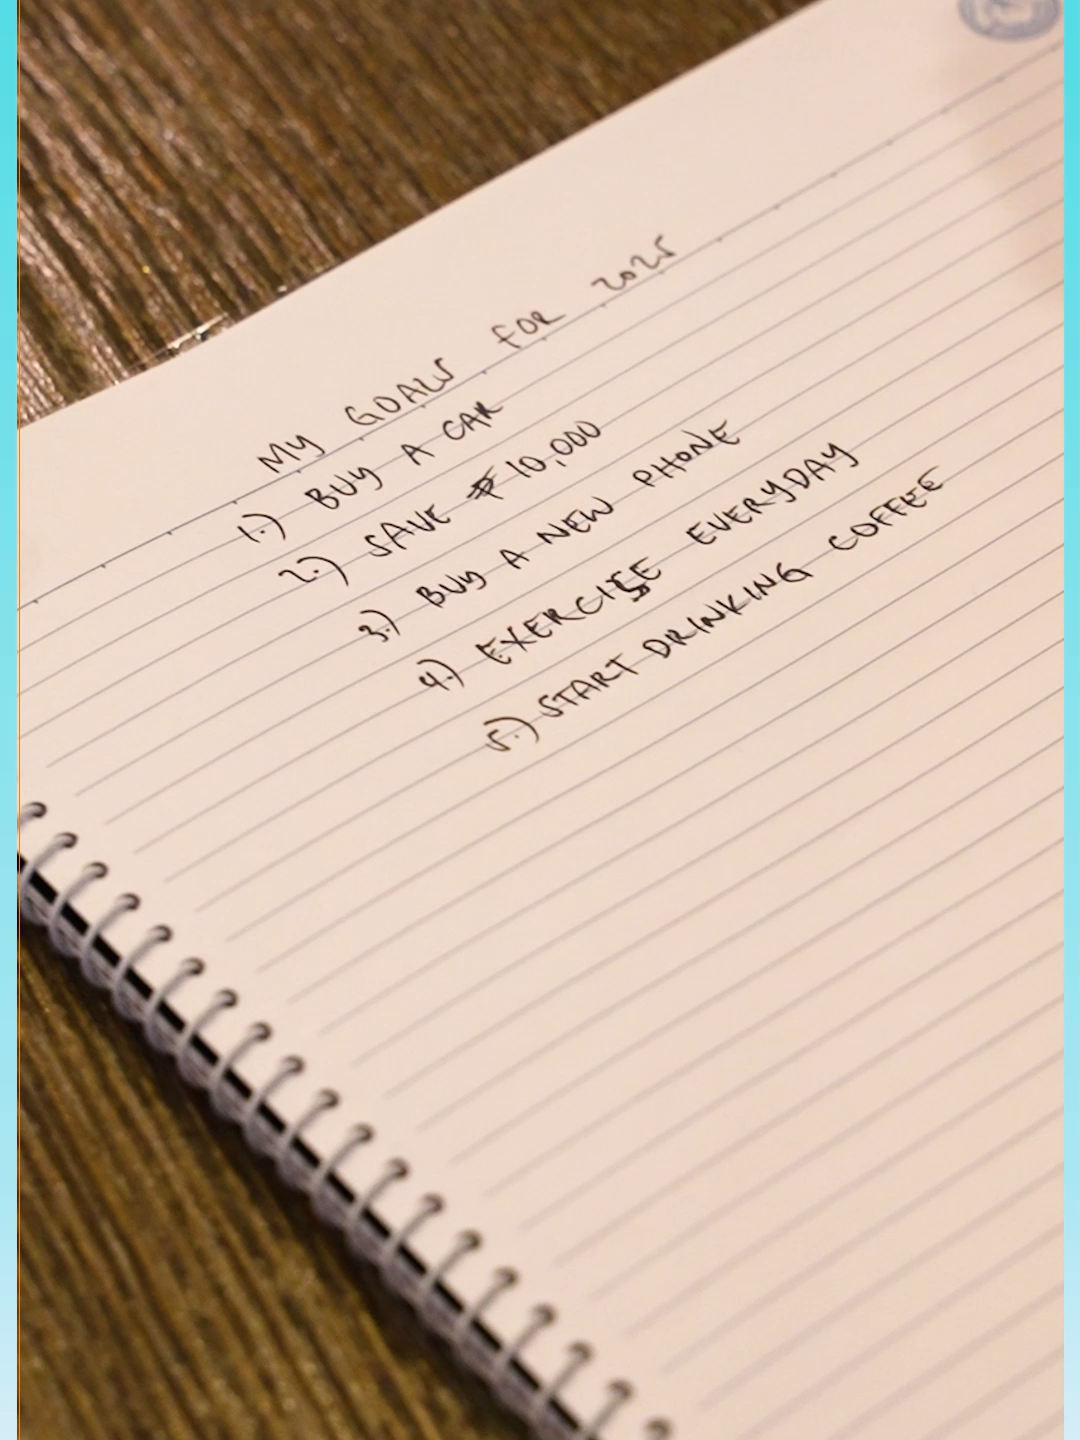 My GOALS FOR 2025
1.) BUY A CAR
2.) SAVE ₱10,000
3.) BUY A NEW PHONE
4.) EXERCISE EVERYDAY
5.) START DRINKING COFFEE